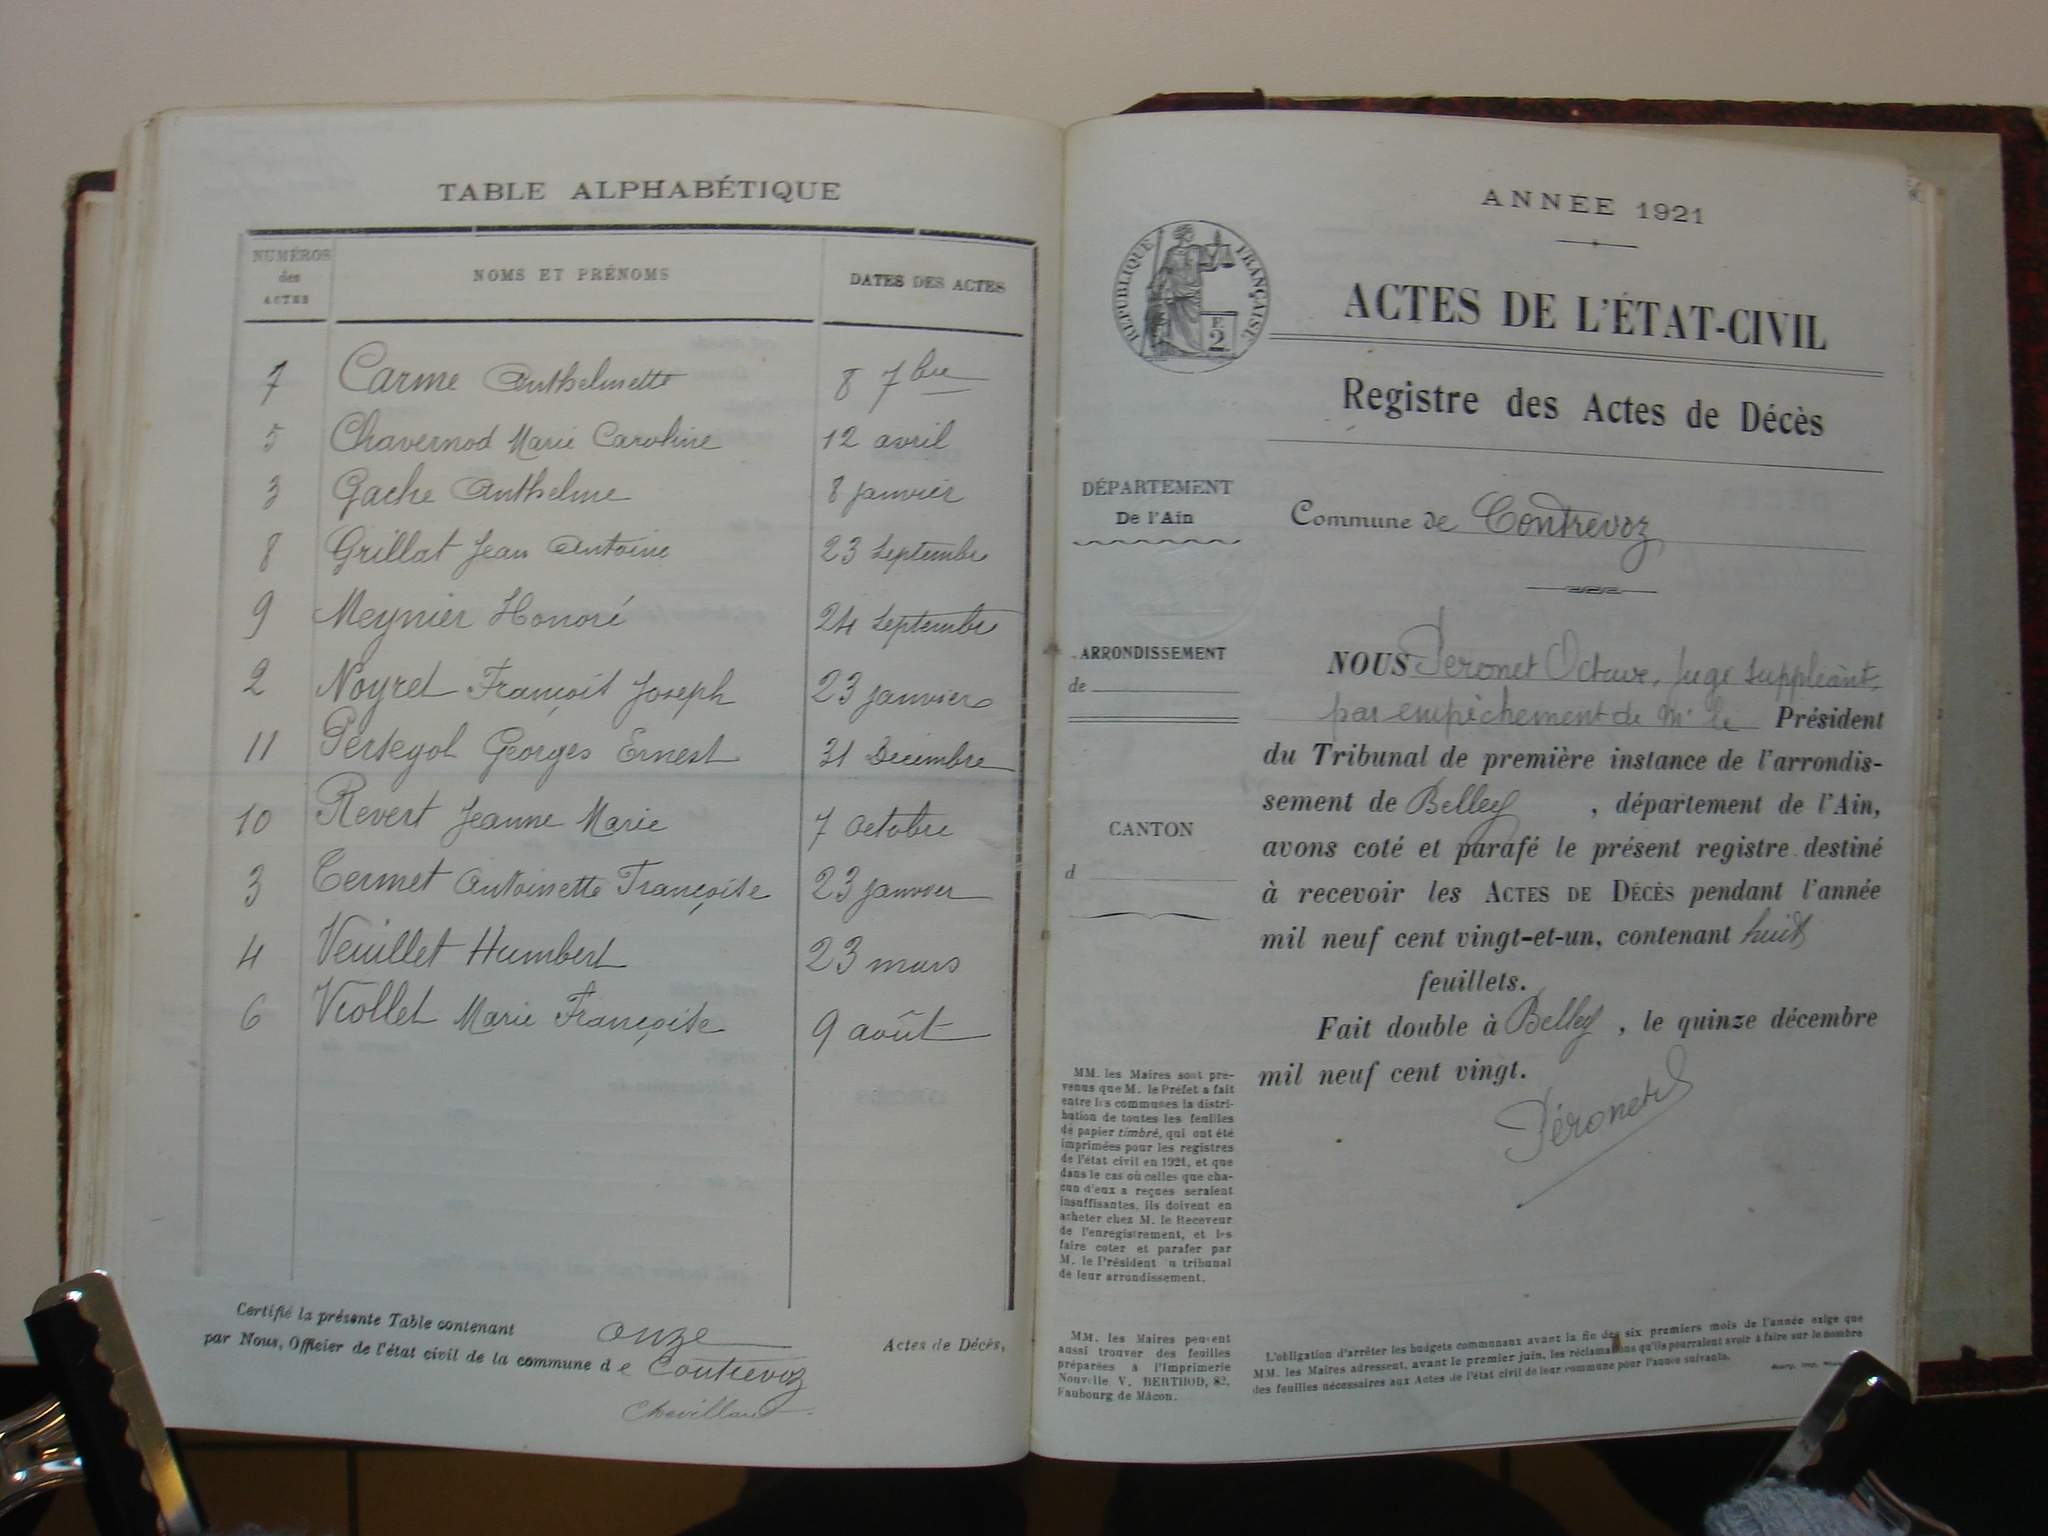 TABLE ALPHABÉTIQUE
NUMÉROS des ACTES NOMS ET PRÉNOMS DATES DES ACTES
7 Carme Anthelmette 8 7bre
5 Chavernod Marie Caroline 12 avril
3 Gache Anthelme 8 janvier
8 Grillat Jean Antoine 23 Septembre
9 Meynier Honoré 24 Septembre
2 Noyret François Joseph 23 janvier
11 Persegol Georges Ernest 31 Décembre
10 Revert Jeanne Marie 7 Octobre
3 Termet Antoinette Françoise 23 janvier
4 Veuillet Humbert 23 mars
6 Viollet Marie Françoise 9 août
Certifié la présente Table contenant onze Actes de Décès,
par Nous, Officier de l'état civil de la commune de Contrevoz
ANNÉE 1921
RÉPUBLIQUE FRANÇAISE
F.
2
ACTES DE L'ÉTAT-CIVIL
Registre des Actes de Décès
DÉPARTEMENT
De l'Ain
Commune de Contrevoz
ARRONDISSEMENT
de
CANTON
d
NOUS Péronet Octave, Juge suppléant,
par empêchement de Mr le Président
du Tribunal de première instance de l'arrondis-
sement de Belley, département de l'Ain,
avons coté et parafé le présent registre destiné
à recevoir les ACTES DE DÉCÈS pendant l'année
mil neuf cent vingt-et-un, contenant huit
feuillets.
Fait double à Belley, le quinze décembre
mil neuf cent vingt.
Péronet
MM. les Maires sont pré-
venus que M. le Préfet a fait
entre les communes la distri-
bution de toutes les feuilles
de papier timbré, qui ont été
imprimées pour les registres
de l'état civil en 1921, et que
dans le cas où celles que cha-
cun d'eux a reçues seraient
insuffisantes, ils doivent en
acheter chez M. le Receveur
de l'enregistrement, et les
faire coter et parafer par
M. le Président u tribunal
de leur arrondissement.
MM. les Maires peuvent
aussi trouver des feuilles
préparées à l'Imprimerie
Nouvelle V. BERTHOD, 82,
Faubourg de Mâcon.
L'obligation d'arrêter les budgets communaux avant la fin des six premiers mois de l'année exige que
MM. les Maires adressent, avant le premier juin, les réclamations qu'ils pourraient avoir à faire sur le nombre
des feuilles nécessaires aux Actes de l'état civil de leur commune pour l'année suivante.